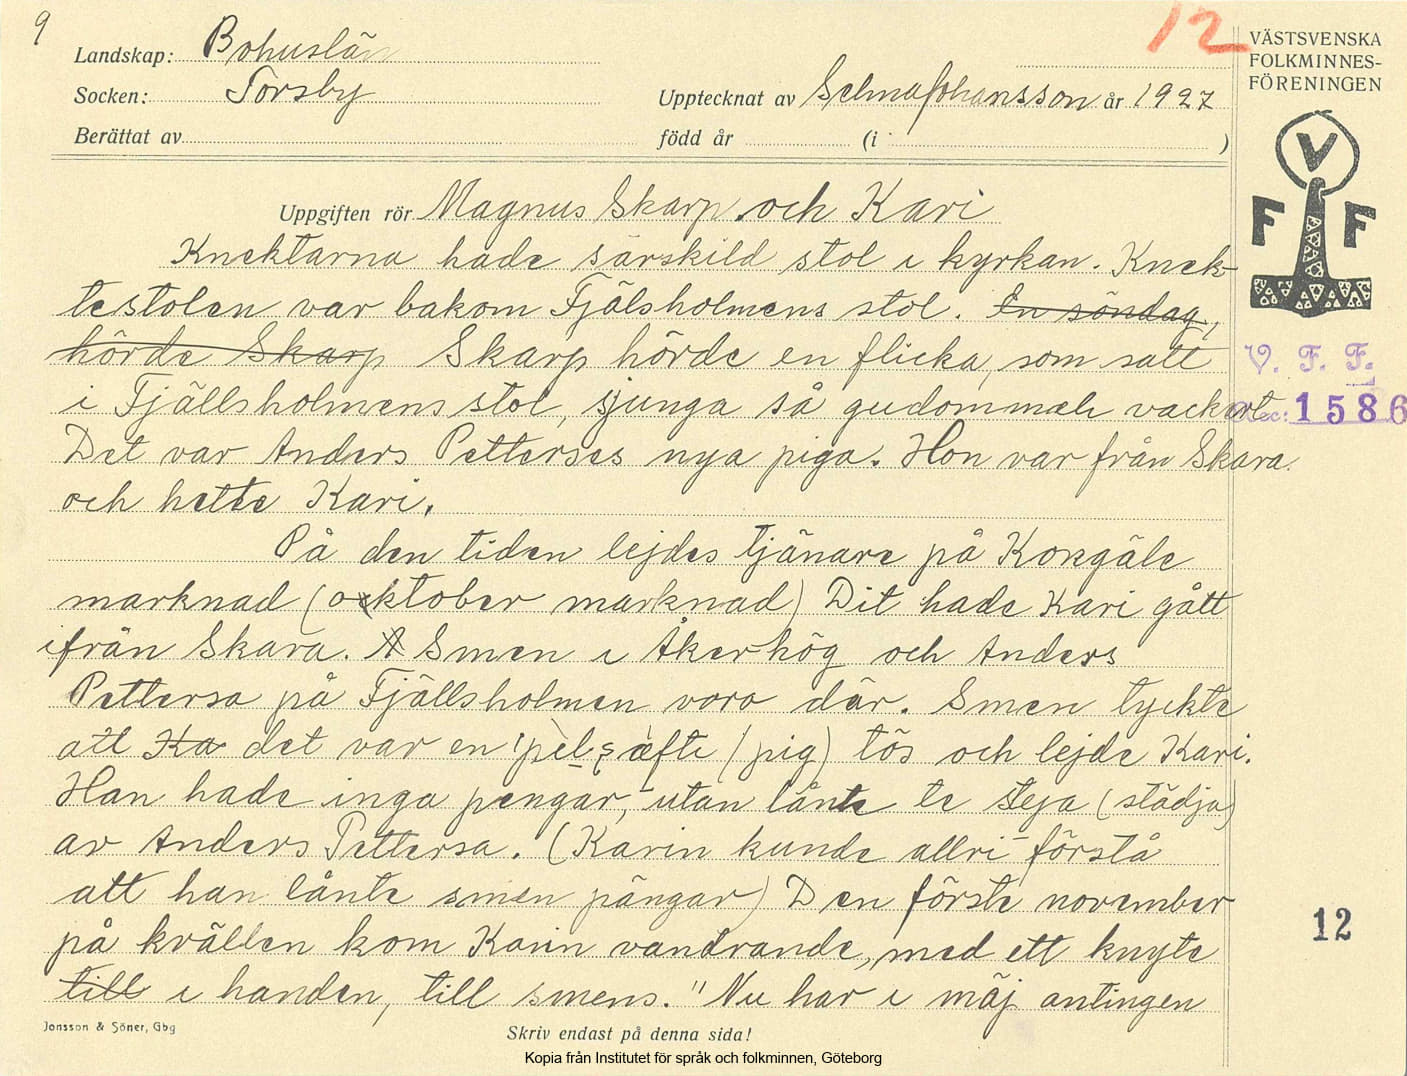 9
12
Landskap: Bohuslän
Socken: Torsby
Upptecknat av Selma Johansson år 1927
Berättat av
född år (i )
VÄSTSVENSKA
FOLKMINNES-
FÖRENINGEN
V
F F
V. F. F.
Acc: 1586
Uppgiften rör Magnus Skarp och Kari
Knektarna hade särskild stol i kyrkan. Knek-
testolen var bakom Fjälsholmens stol. En söndag,
hörde Skarp Skarp hörde en flicka, som satt
i Fjällsholmens stol, sjunga så gudommeli vackert
Det var Anders Petterses nya piga. Hon var från Skara
och hette Kari.
På den tiden lejdes tjänare på Kongäls
marknad (oktober marknad) Dit hade Kari gått
ifrån Skara. A Smen i Åkerhög och Anders
Pettersa på Fjällsholmen voro där. Smen tyckte
att Ka det var en (pig) tös och lejde Kari.
Han hade inga pengar, utan lånte te steja (städja)
av Anders Pettersa. (Karin kunde allri förstå
att han lånte smen pängar) Den förste november
på kvällen kom Karin vandrande, med ett knyte
till i handen, till smens. "Nu har i mäj antingen
12
Jonsson & Söner, Gbg
Skriv endast på denna sida!
Kopia från Institutet för språk och folkminnen, Göteborg